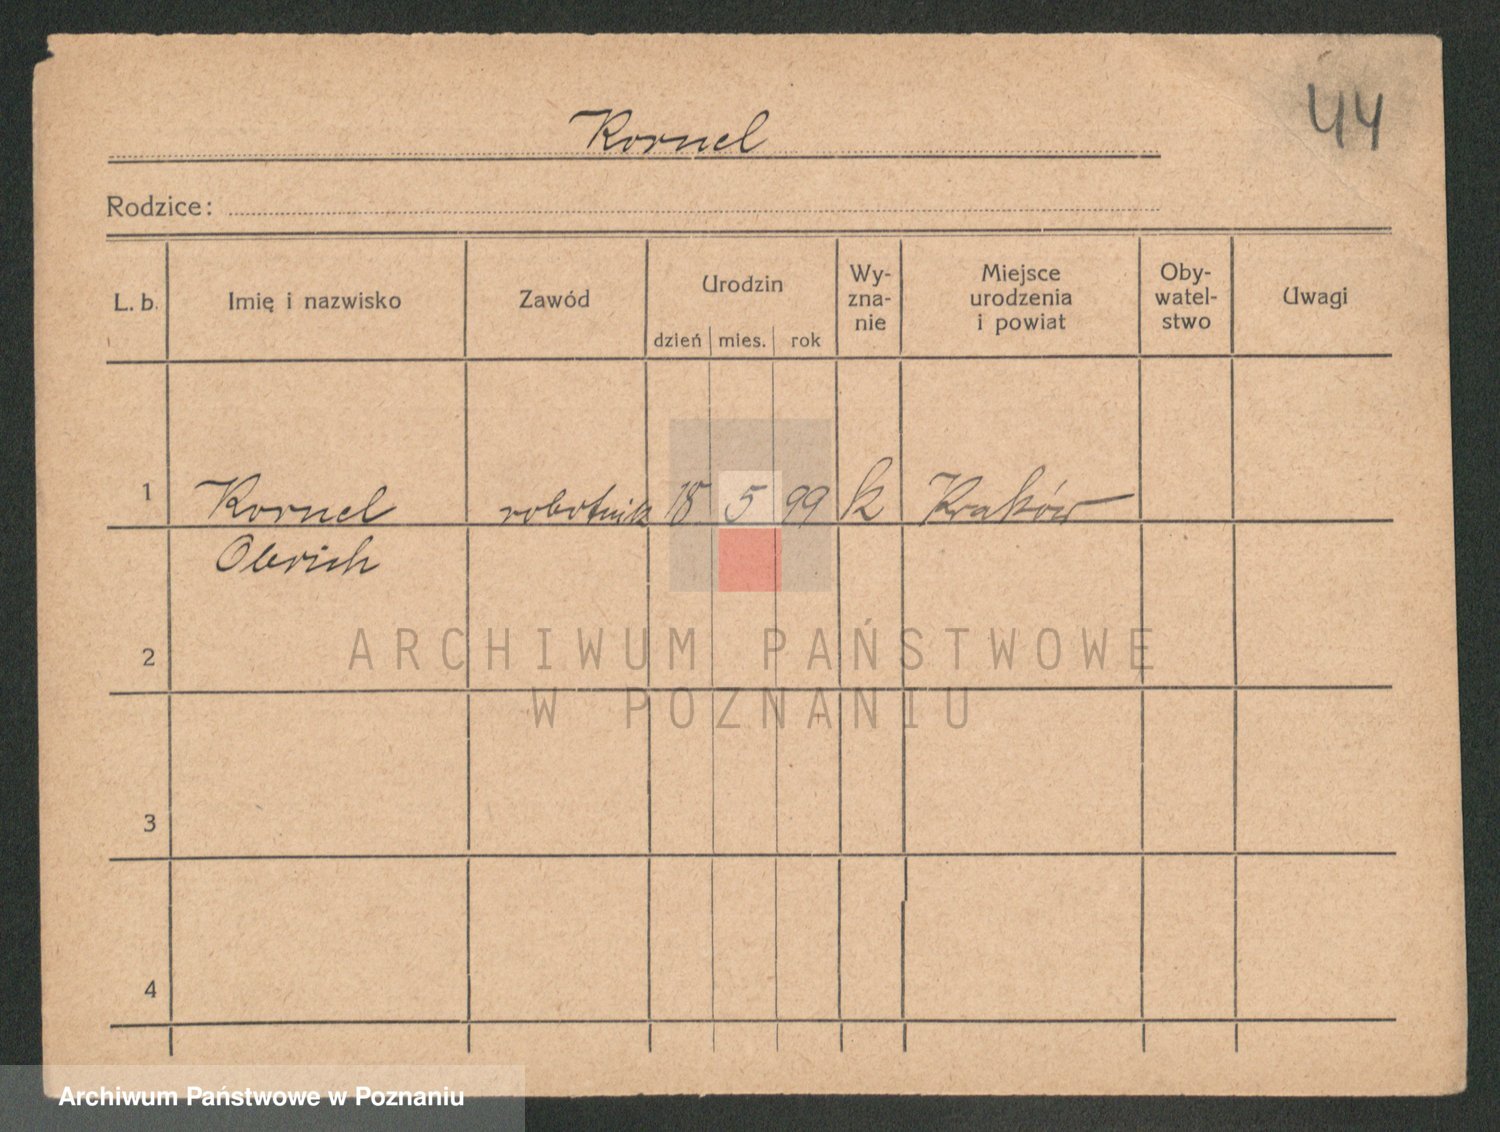 44
Kornel
Rodzice:
L. b. Imię i nazwisko Zawód Urodzin dzień mies. rok Wy-zna-nie Miejsce urodzenia i powiat Oby-watel-stwo Uwagi
1 Kornel robotnik 18 5 99 k Kraków
Olbrich
2
3
4
ARCHIWUM PAŃSTWOWE
W POZNANIU
Archiwum Państwowe w Poznaniu